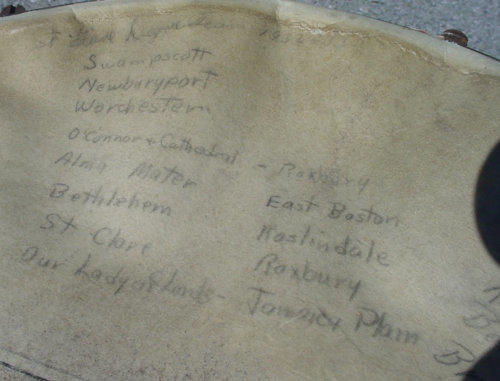 St
Swampscott
Newburyport
Worchester
O'Connor + Cathedral - Roxbury
Alma Mater East Boston
Bethlehem Roslindale
St Clare Roxbury
Our Lady of Lords - Jamaica Plain